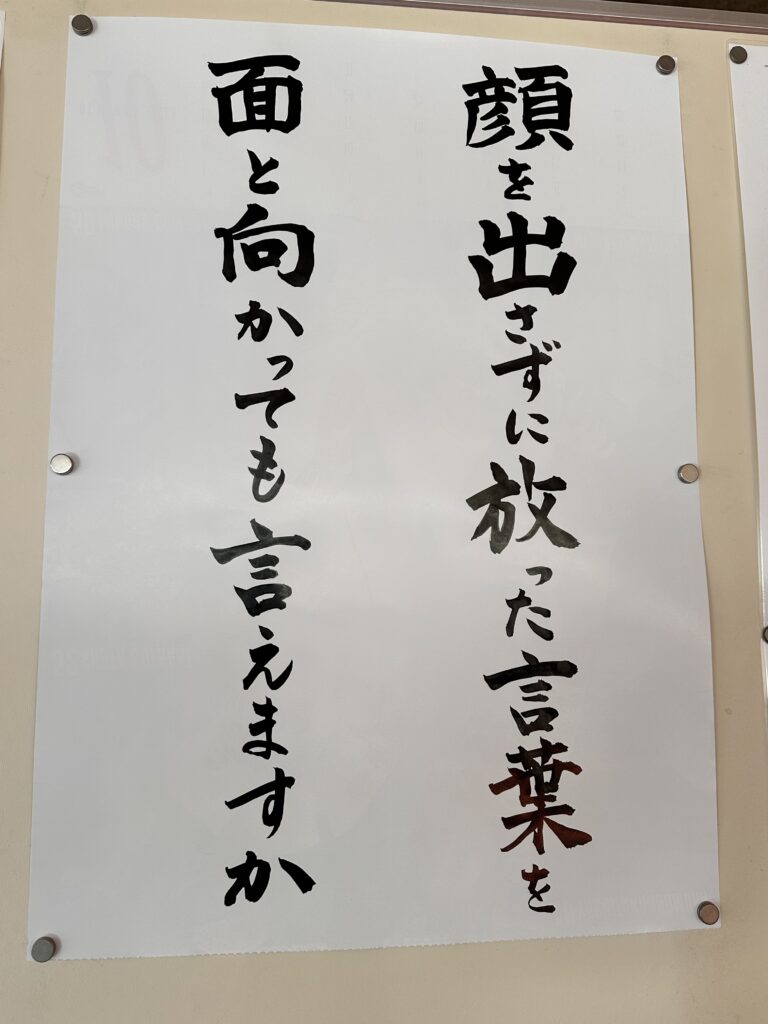 顔を出さずに放った言葉を
面と向かっても言えますか